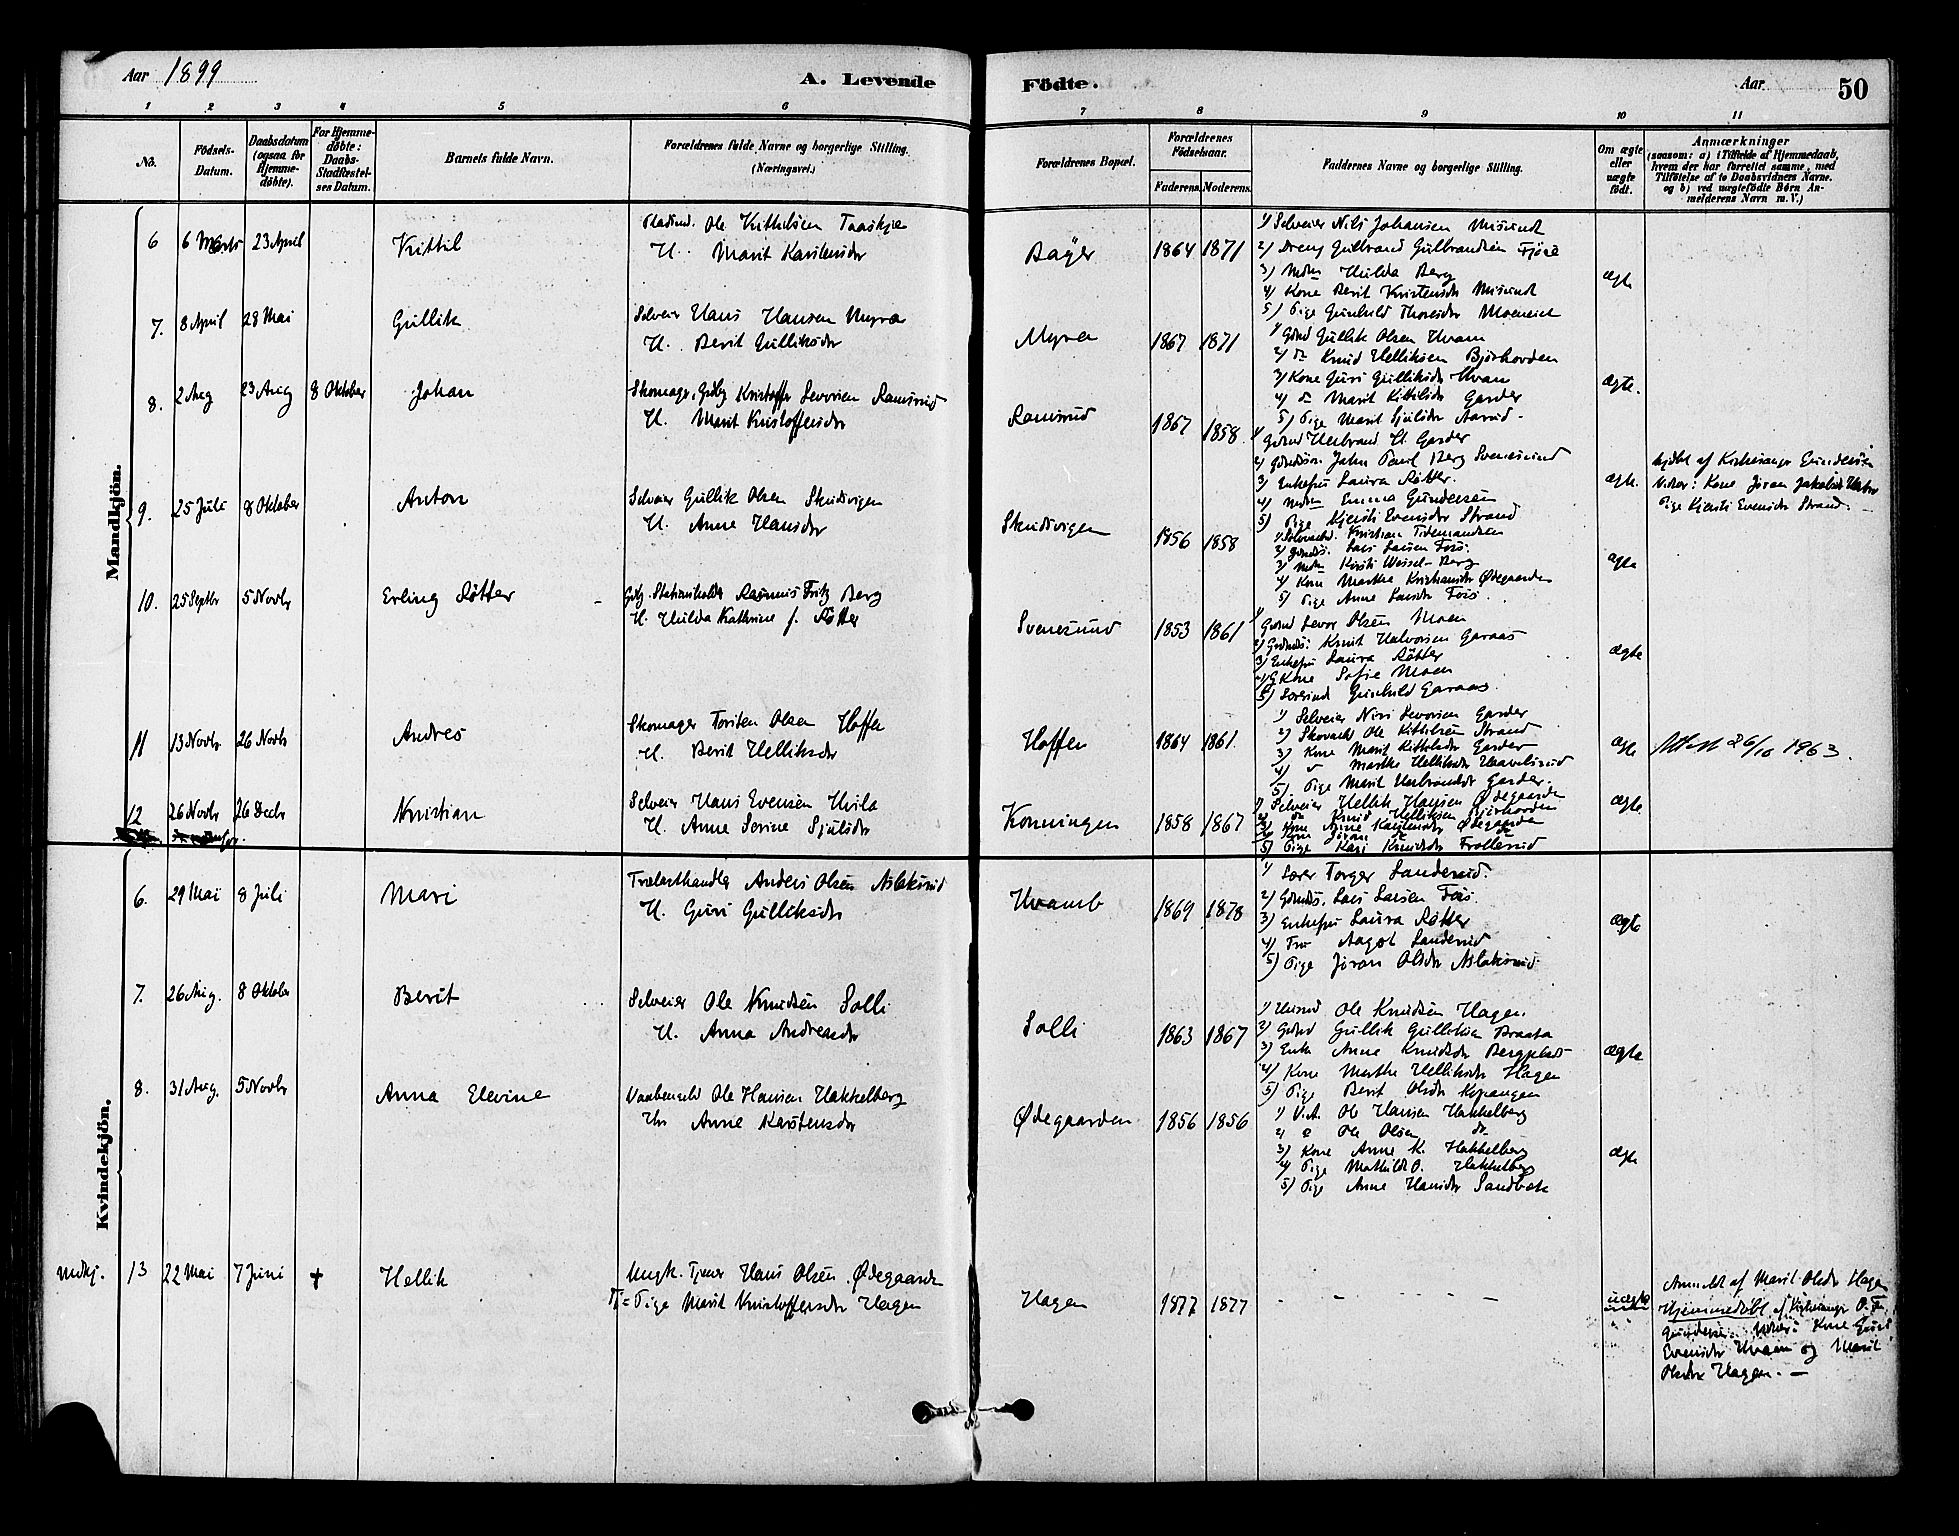 Aar 1899
A. Levende
Födte.
Aar
50
1 2 3 4 5 6 7 8 9 10 11
No.
Födsels-Datum.
Daabsdatum (ogsaa for Hjemme-döbte).
For Hjemme-döbte: Daabs-Stadfæstel-ses Datum.
Barnets fulde Navn.
Forældrenes fulde Navne og borgerlige Stilling. (Næringsvei.)
Forældrenes Bopæl.
Forældrenes Födselsaar.
Faderens. Moderens.
Faddernes Navne og borgerlige Stilling.
Om ægte eller uægte födt.
Anmærkninger
(saasom: a) i Tilfælde af Hjemmedaab,
hvem der har forrettet samme, med
Tilföielse af to Daabsvidners Navne.
og b) ved uægtefödte Börn An-
melderens Navn m. V.)
Mandkjön.
6 6 Marts 23 April Kittil
Ole Kittilsen Taaskje
H. Marit Karstensdr
Bager 1864 1871
1) Selveier Nils Johansen Misund
2) Dreng Gulbrand Gulbrandsen Fjöse
3) Mdm Hilda Berg
4) Kone Berit Kristensdr Misund
5) Pige Gunhild Thorsdr Moeneiet
ægte
7. 8 April 28 Mai Gullik
Selveier Hans Hansen Myra
H. Berit Gulliksdr
Myra 1867 1871
1) Gbrd Gullik Olsen Hvam
2) do Knud Helliksen Björhovden
3) Kone Guri Gulliksdr Hvam
4) do Marit Kittilsdr Garder
5) Pige Marit Sjulsdr Aasrud
ægte.
8. 2 Aug 23 Aug 8 Oktober Johan
Skomager, Gdbg Kristoffer Levorsen Ramsrud
H. Marit Kristoffersdr
Ramsrud 1867 1858
1) Gbrd Herbrand H. Garder
2) Gbrdsön John Paul Berg Svenesund
3) Enkefru Laura Rötter.
4) Mdm Emma Gundersen
5) Pige Kjersti Evensdr Strand
ægte.
hjdbt af Kirkesanger Gundersen
Vidner: Kone Jöran Jakobsdr
Pige Kjersti Evensdr Strand. –
9. 25 Juli 8 Oktober Anton
Selveier Gullik Olsen Skudsvigen
H. Anne Hansdr
Skudsvigen 1856 1858
1) Kristian Tidemandsen
2) Gbrds. Lars Larsen Fös.
3) Mdm Kirsti Wessel-Berg
4) Kone Marthe Kristiansdr Ødegaarden
5) Pige Anne Larsdr Fös.
ægte
10. 25 Septbr 5 Novbr Erling Rötter
Gdbg. Stationsholder Rasmus Fritz Berg
H. Hilda Kathrine f. Rötter
Svenesund 1853 1861
1) Gbrd Levor Olsen Moen
2) Gbrds: Knut Halvorsen Garaas
3) Enkefru Laura Rötter
4) G Kone Sofie Moen
5) Gunhild Garaas.
ægte
11 13 Novbr 26 Novbr Andres
Skomager Torsten Olsen Hoffen
H. Berit Helliksdr
Hoffen 1864 1861.
1) Selveier Niri Levorsen Garder
2) Ole Kittilsen Strand
3) Kone Marit Kittilsdr Garder
4) " Marthe Helliksdr
5) Pige Marit Herbrandsdr Garder.
ægte
Attest 26/10 1963.
12 26 Novbr 26 Decbr Kristian
Selveier Hans Evensen Hvila
H. Anne Serine Sjulsdr
Konningen 1858 1867
1) Selveier Hellik Hansen Ødegaarden
2) do Knud Helliksen Björhovden
3) Kone Anne Karstensdr Ødegaarden
4) Kone Jöran do do
5) Pige Kari Knudsdr Trollerud
ægte.
Kvindekjön.
6. 29 Mai 8 Juli Mari
Trælasthandler Anders Olsen Aslaksrud
H. Guri Gulliksdr
Hvamb 1869 1878
1) Lærer Torger Landerud.
2) Gbrds. Lars Larsen Fös.
3) Enkefru Laura Rötter
4) Fru Aagot Landerud
5) Pige Jöran Olsdr Aslaksrud
ægte
7. 26 Aug. 8 Oktober Berit
Selveier Ole Knudsen Solli
H. Anna Andreasdr
Solli 1863 1867
1) Husmd Ole Knudsen Hagen.
2) Gbrd Gullik Gulliksen Braata
3) Enke Anne Knudsdr Bergplads
4) Kone Marthe Helliksdr Hagen
5) Pige Berit Olsdr Kopangen
ægte
8. 31 Aug. 5 Novbr Anna Elevine
Vaabensmd Ole Hansen Hakkelberg
Hr Anne Karstensdr
Ødegaarden 1856 1856
1) V.A. Ole Hansen Hakkelberg
2) " Ole Olsen do
3) Kone Anne K. Hakkelberg
4) Pige Mathilde O. Hakkelberg
5) Pige Anne Hansdr Sandbæk
ægte
Mdkj. 13 22 Mai 7 Juni + Hellik
Ungk. Tjener Hans Olsen Ødegaarden
Pige Marit Kristoffersdr Hagen
Hagen 1877 1877
– – – – –
uægte
Anmeldt af Marit Olsdr Hagen
Hjemmedöbt af Kirkesanger O. T.
Gundersen. Vidner: Kone Guri
Evensdr Hvam og Marit
Olsdr Hagen. –